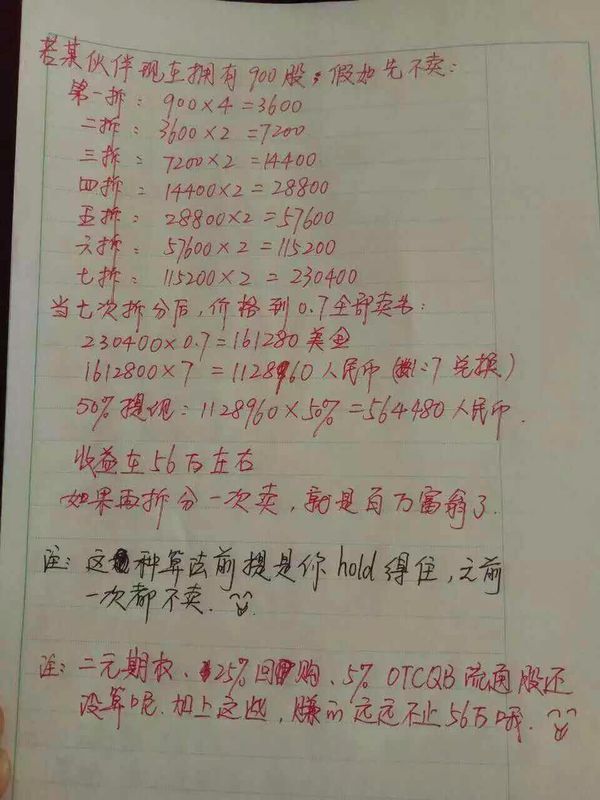 若某伙伴现在拥有900股，假如先不卖：
第一拆：900×4=3600
二拆：3600×2=7200
三拆：7200×2=14400
四拆：14400×2=28800
五拆：28800×2=57600
六拆：57600×2=115200
七拆：115200×2=230400
当七次拆分后，价格到0.7全部卖出：
230400×0.7=161280美金
1612800×7=1128960人民币（1:7兑换）
50%提现：1128960×50%=564480人民币.
收益在56万左右
如果再拆分一次卖，就是百万富翁了.
注：这种算法前提是你hold得住，之前
一次都不卖.
注：二元期权、25%回购、5% OTCQB流通股还
没算呢.加上这些，赚的远远不止56万哦.